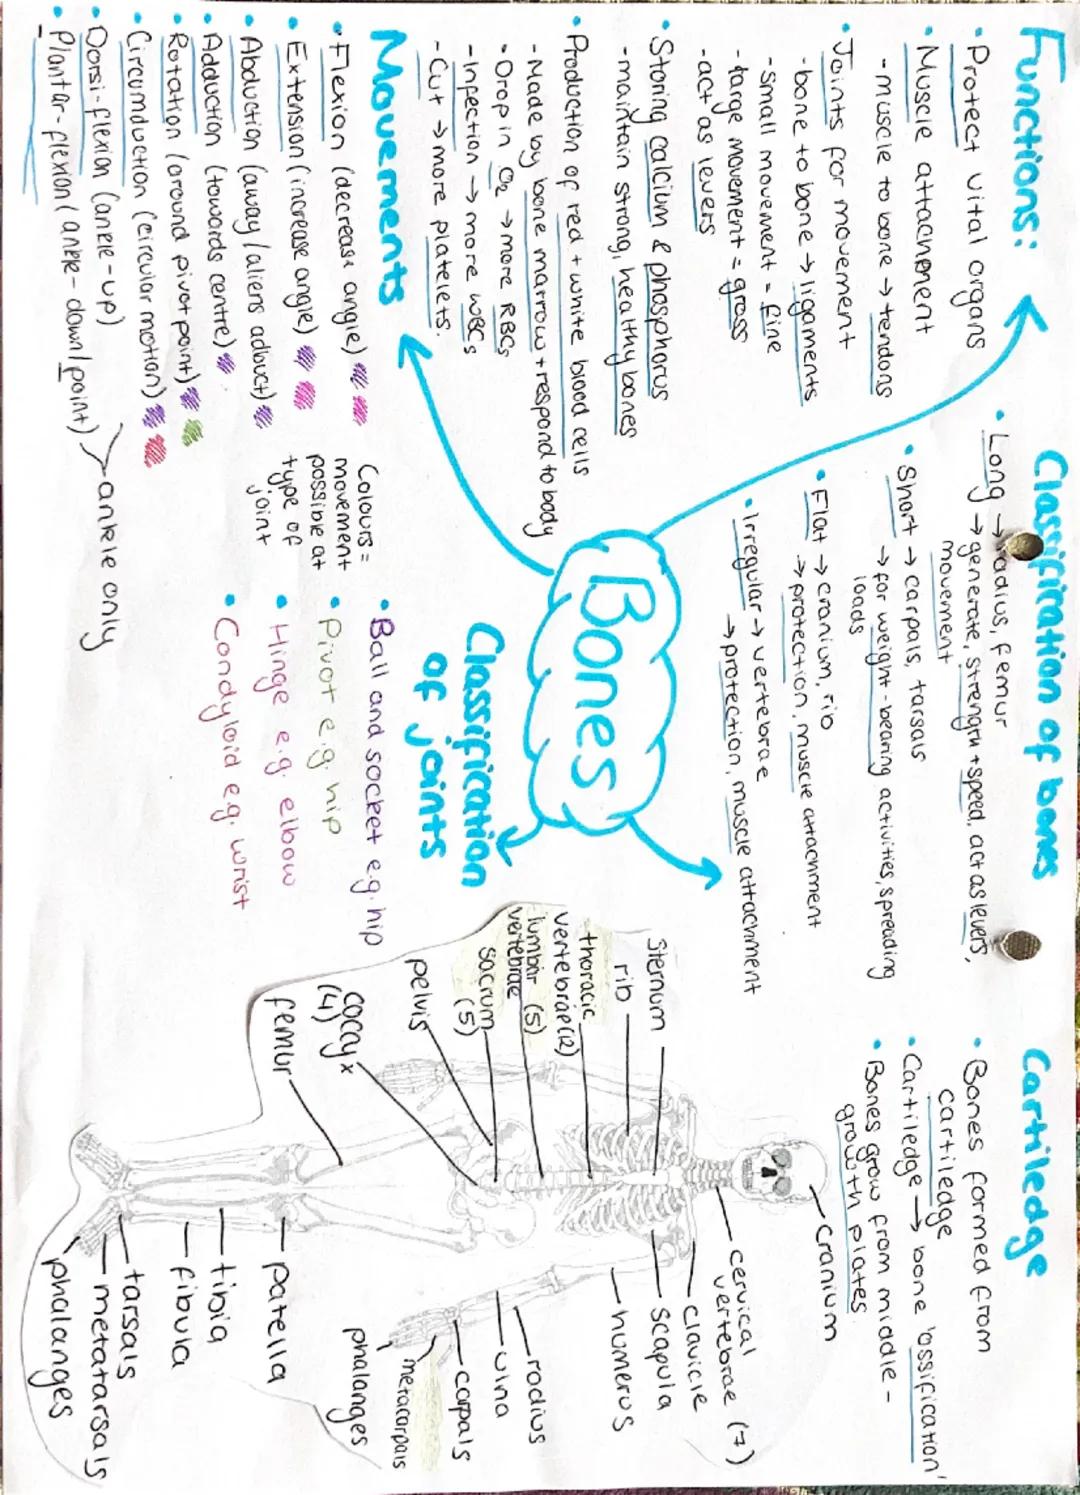 Functions:
• Protect vital organs
• Muscle attachment
- muscle to bone → tendons
• Joints for movement
- bone to bone → ligaments
- small movement = fine
- large movement = gross
- act as levers
• Storing calcium & phosphorus
- maintain strong, healthy bones
• Production of red + white blood cells
- Made by bone marrow + respond to body
• Drop in O2 → more RBCs
- Infection → more WBCs
- Cut → more platelets.
Movements
• Flexion (decrease angle)
• Extension (increase angle)
• Abduction (away/aliens adbuct)
• Adduction (towards centre)
• Rotation (around pivot point)
• Circumduction (circular motion)
• Dorsi-flexion (ankle - up)
• Plantar-flexion (ankle - down/point)
ankle only
Colours =
movement
possible at
type of
joint
Bones
Classification of bones
• Long → radius, femur
→ generate, strength + speed, act as levers,
movement
• Short → carpals, tarsals
→ for weight-bearing activities, spreading
loads
• Flat → cranium, rib
→ protection, muscle attachment
• Irregular → vertebrae
→ protection, muscle attachment
Classification
of joints
• Ball and socket e.g. hip
• Pivot e.g. hip
• Hinge e.g. elbow
• Condyloid e.g. wrist
Cartiledge
• Bones formed from
cartiledge
• Cartiledge → bone 'ossification'
• Bones grow from middle -
growth plates
cranium
cervical
vertebrae (7)
clavicle
scapula
humerus
radius
ulna
carpals
metacarpals
phalanges
patella
tibia
fibula
tarsals
metatarsals
phalanges
sternum
rib
thoracic
vertebrae (12)
lumbar (5)
vertebrae
sacrum
(5)
pelvis
coccyx
(4)
femur